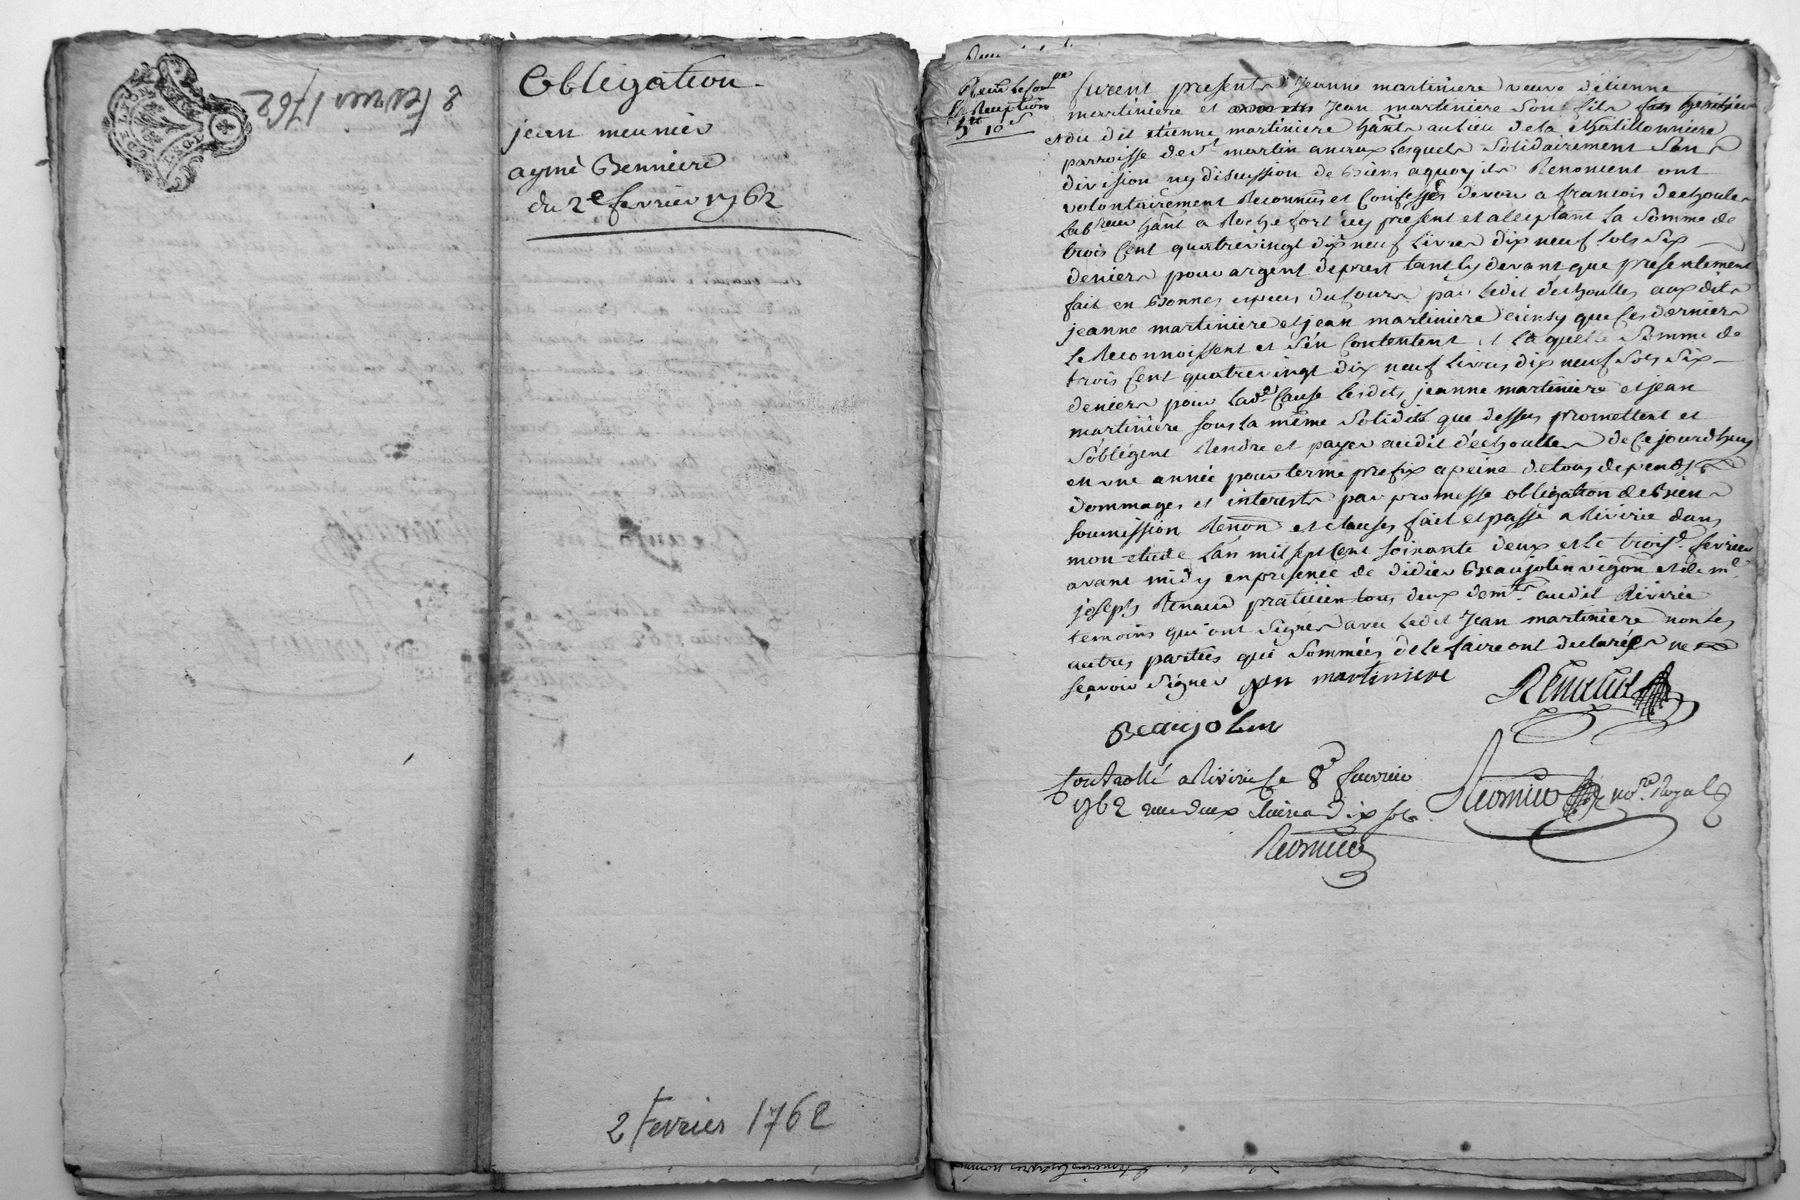 2 fevrier 1762
Obligation
jean meunier
aymé Benniere
du 2e fevrier 1762
2 Fevrier 1762
Reception
furent presents Jeanne martiniere veuve d'étienne
martiniere et Jean martiniere son fils
et du dit étienne martiniere hants au lieu de la Chatillonniere
parroisse de St martin anaux lesquels solidairement sans
division ny discussion de biens aquoy ils Renoncent ont
volontairement Reconnus et Confessés devoir a francois dechoulles
Labreur hant a Rochefort icy present et acceptant La somme de
trois Cent quatrevingt dix neuf Livres dix neuf sols six
deniers pour argent de prest tant cy devant que presentement
fait en bonnes especes du Cours par ledit dechoulles aux dits
jeanne martiniere et jean martiniere einsy que Ces derniers
Le Reconnoissent et s'en Contentent et La quelle somme de
trois Cent quatrevingt dix neuf Livres dix neuf sols six
deniers pour Lade Cause Lesdits jeanne martiniere et jean
martiniere sous La même solidité que dessus promettent et
s'obligent Rendre et payer audit déchoulles de Ce jourdhuy
en une année pour terme prefix a peine de tous depends
dommages et interests par promesse obligation de biens
soumission Renon et clauses fait et passé a Riverie dans
mon etude L'an mil sept Cent soixante deux et Le troise fevrier
avant midy en presence de didier Beaujolin vigon et de me
joseph Renaud praticien tous deux demts audit Riverie
temoins qui ont signes avec Ledit Jean martiniere non Les
autres parties qui sommées de Le faire ont declarées ne
sçavoir signer jan martiniere
Renaud
Beaujolin
Controllé a Riverie Le 8e fevrier
1762 Reçu deux Livres dix sols
no.re Royal